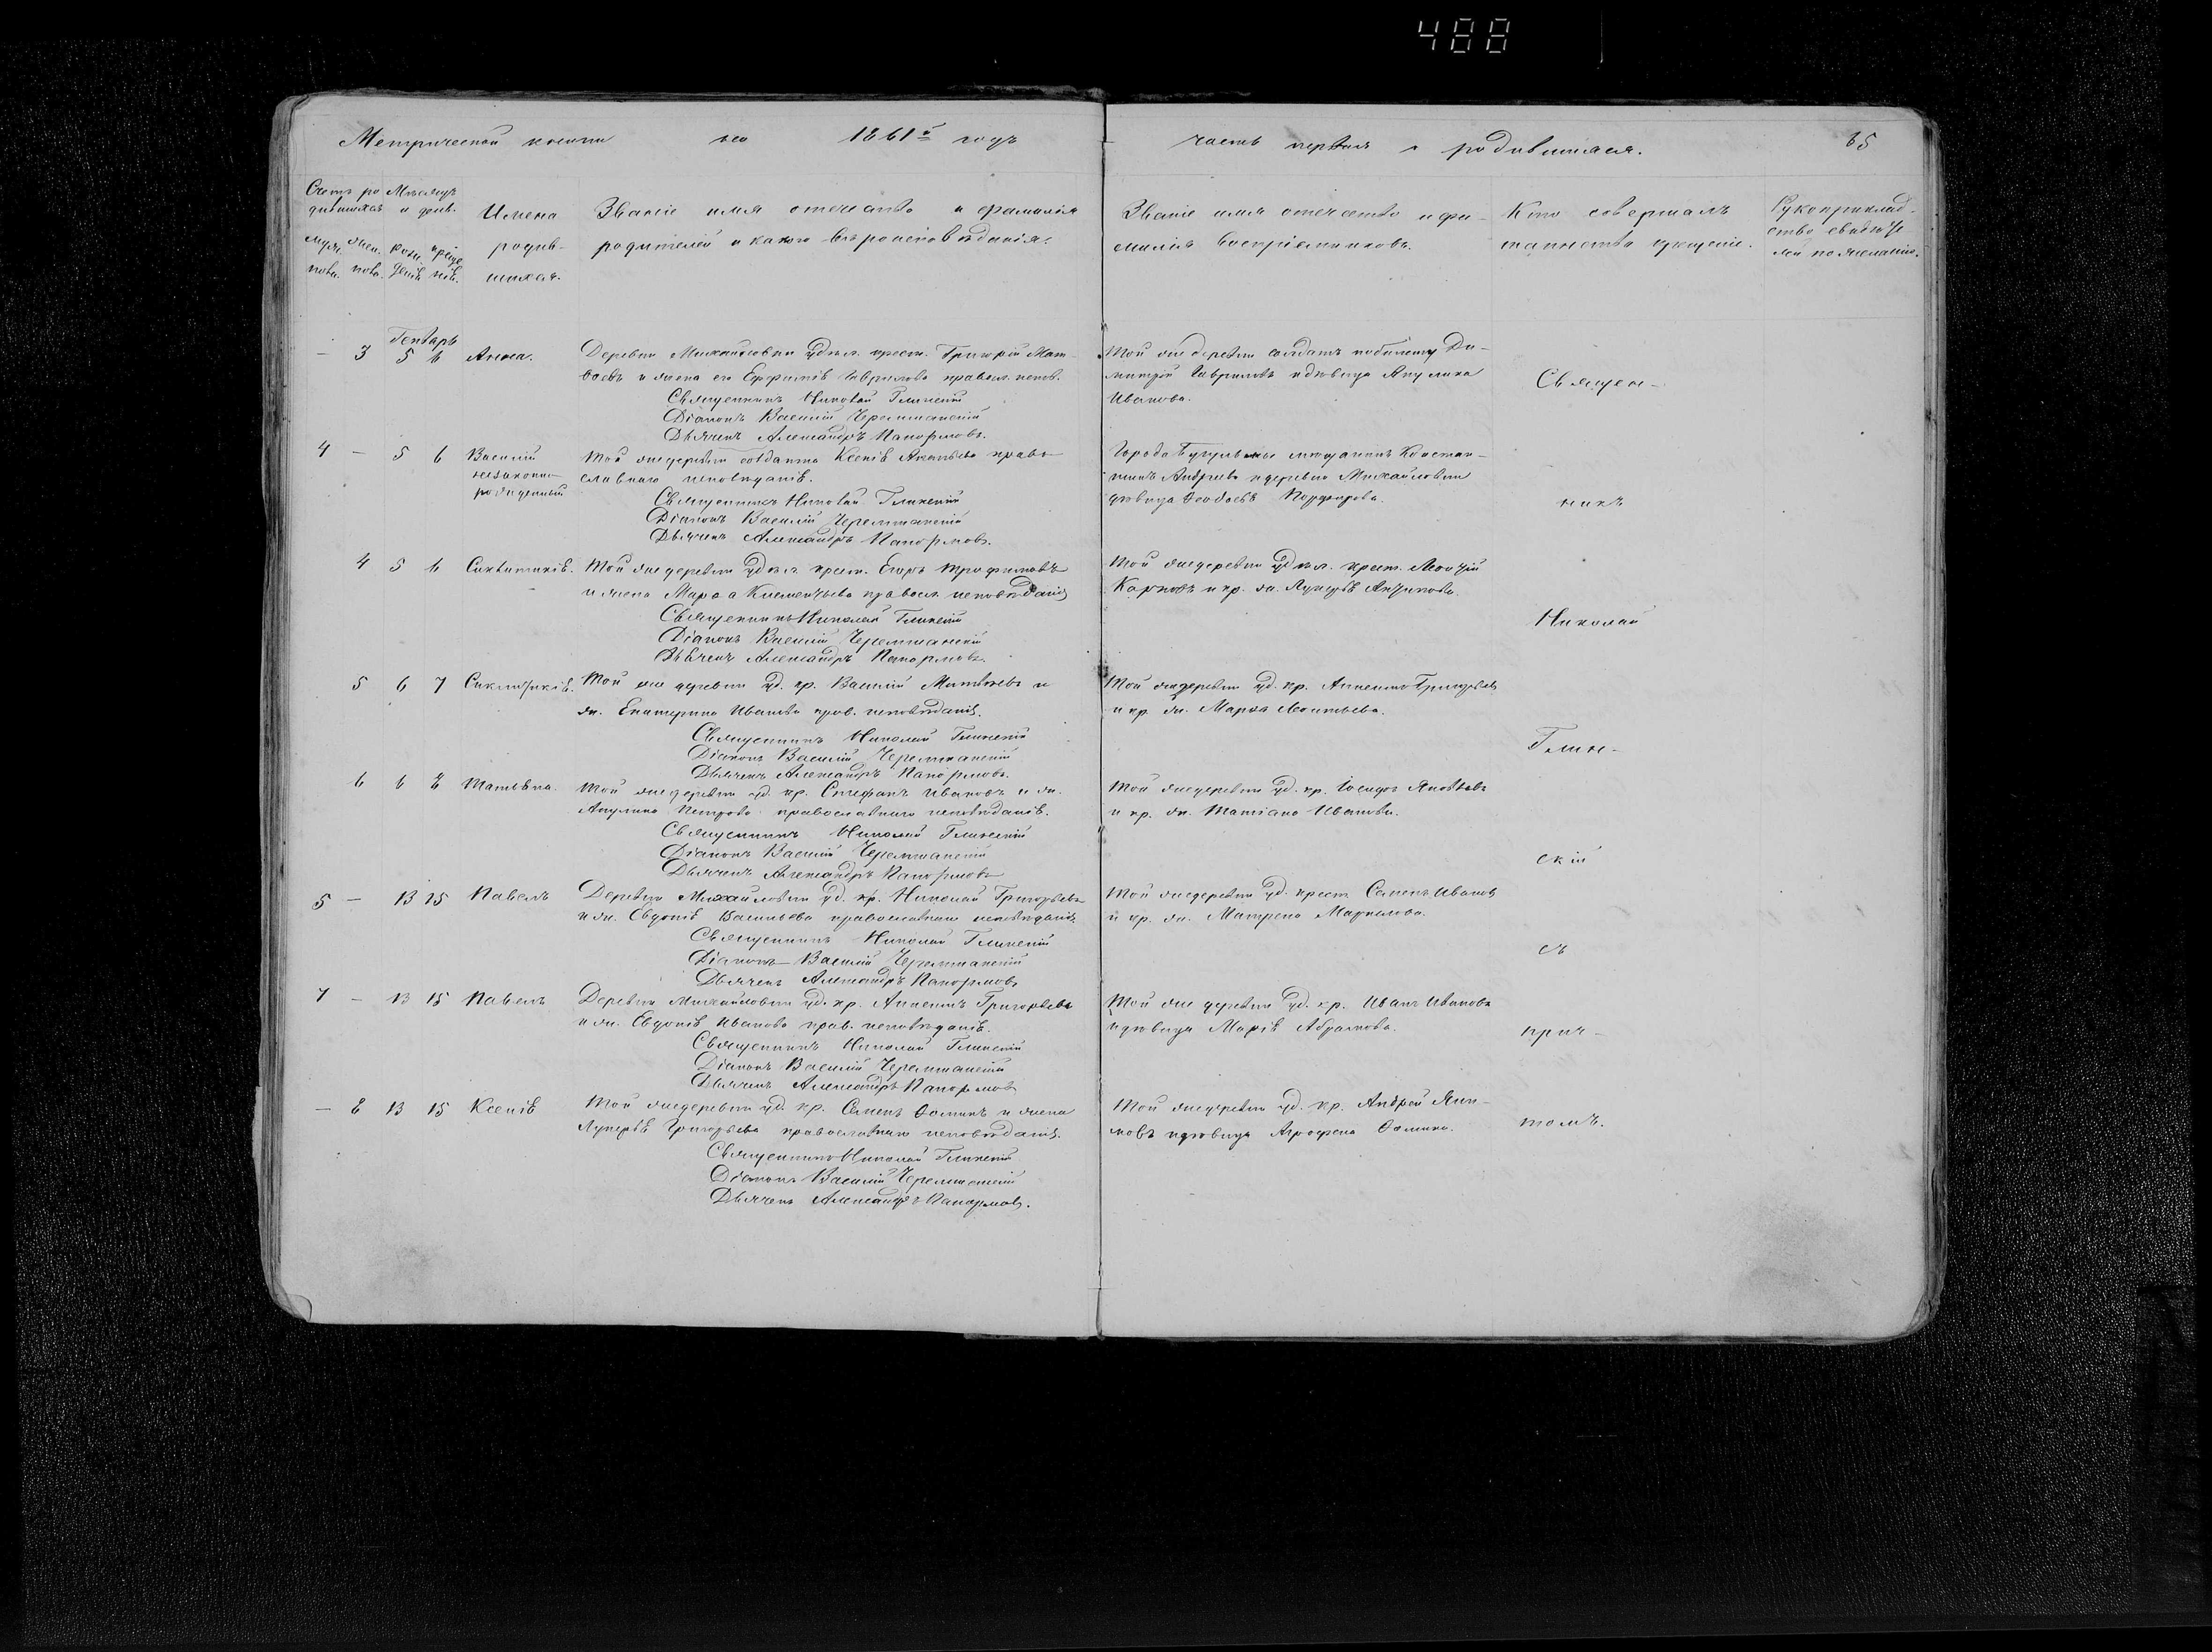 488
Метрической книги на 1861й годъ
часть первая о родившихся.
85
Счетъ ро Мѣсяцъ
дившихся и день.
муж. жен. рожд крще
пола. пола. денія нія.
Имена
родив-
шихся.
Званіе имя отчество и фамилія
родителей и какого вѣроисповѣданія.
Званіе имя отечество и фа-
милія воспріемниковъ.
Кто совершалъ
таинство крещенія.
Рукоприклад-
ство свидѣте
лей по желанію.
Генварь
— 3 5 6 Анна.
Деревни Михайловки удѣл. крест. Григорій Мат-
вѣевъ и жена его Ефимія Гаврилова правосл. испов.
Священникъ Николай Глинскій
Діаконъ Василій Черемшанскій
Дьячекъ Александръ Папормовъ.
Той же деревни солдатъ Ди-
митрій Гавриловъ и дѣвица Акулина
Иванова.
Священ-
4 — 5 6 Василій
незаконно-
рожденный
Той же деревни солдатка Ксенія право
славнаго исповѣданія.
Священникъ Николай Глинскій
Діаконъ Василій Черемшанскій
Дьячекъ Александръ Папормовъ.
Города Бугульмы мѣщанинъ Констан-
тинъ Андреевъ и деревни Михайловки
дѣвица
никъ
4 5 6 Синклитикія.
Той же деревни удѣл. крест. Егоръ Трофимовъ
и жена Марѳа Климентьева правосл. исповѣданія
Священникъ Николай Глинскій
Діаконъ Василій Черемшанскій
Дьячекъ Александръ Папормовъ.
Той же деревни удѣл. крест.
Карповъ и кр. ж. Лукерья
Николай
5 6 7 Синклитикія.
Той же деревни уд. кр. Василій Матвѣевъ и
ж. Екатерина Иванова прав. исповѣданія.
Священникъ Николай Глинскій
Діаконъ Василій Черемшанскій
Дьячекъ Александръ Папормовъ.
Той же деревни уд. кр. Григорьевъ
и кр. ж. Марѳа Леонтьева.
Глин-
6 6 8 Татьяна.
Той же деревни уд. кр. Стефанъ Ивановъ и ж.
Акулина Петрова православнаго исповѣданія.
Священникъ Николай Глинскій
Діаконъ Василій Черемшанскій
Дьячекъ Александръ Папормовъ
Той же деревни уд. кр. Яковлевъ
и кр. ж. Татіана Иванова.
скій
5 — 13 15 Павелъ
Деревни Михайловки уд. кр. Николай Григорьевъ
и ж. Евдокія Васильева православнаго исповѣданія.
Священникъ Николай Глинскій
Діаконъ Василій Черемшанскій
Дьячекъ Александръ Папормовъ
Той же деревни уд. крест. Семенъ Ивановъ
и кр. ж. Матрена
съ
7 — 13 15 Павелъ
Деревни Михайловки уд. кр. Григорьевъ
и ж. Евдокія Иванова прав. исповѣданія.
Священникъ Николай Глинскій
Діаконъ Василій Черемшанскій
Дьячекъ Александръ Папормовъ
Той же деревни уд. кр. Иванъ Ивановъ
и дѣвица Марія Абрамова.
прич-
— 8 13 15 Ксенія
Той же деревни уд. кр. Семенъ Ѳоминъ и жена
Лукерья Григорьева православнаго исповѣданія.
Священникъ Николай Глинскій
Діаконъ Василій Черемшанскій
Дьячекъ Александръ Папормовъ.
Той же деревни уд. кр. Андрей Яки-
мовъ и дѣвица Агрофена Ѳомина.
томъ.